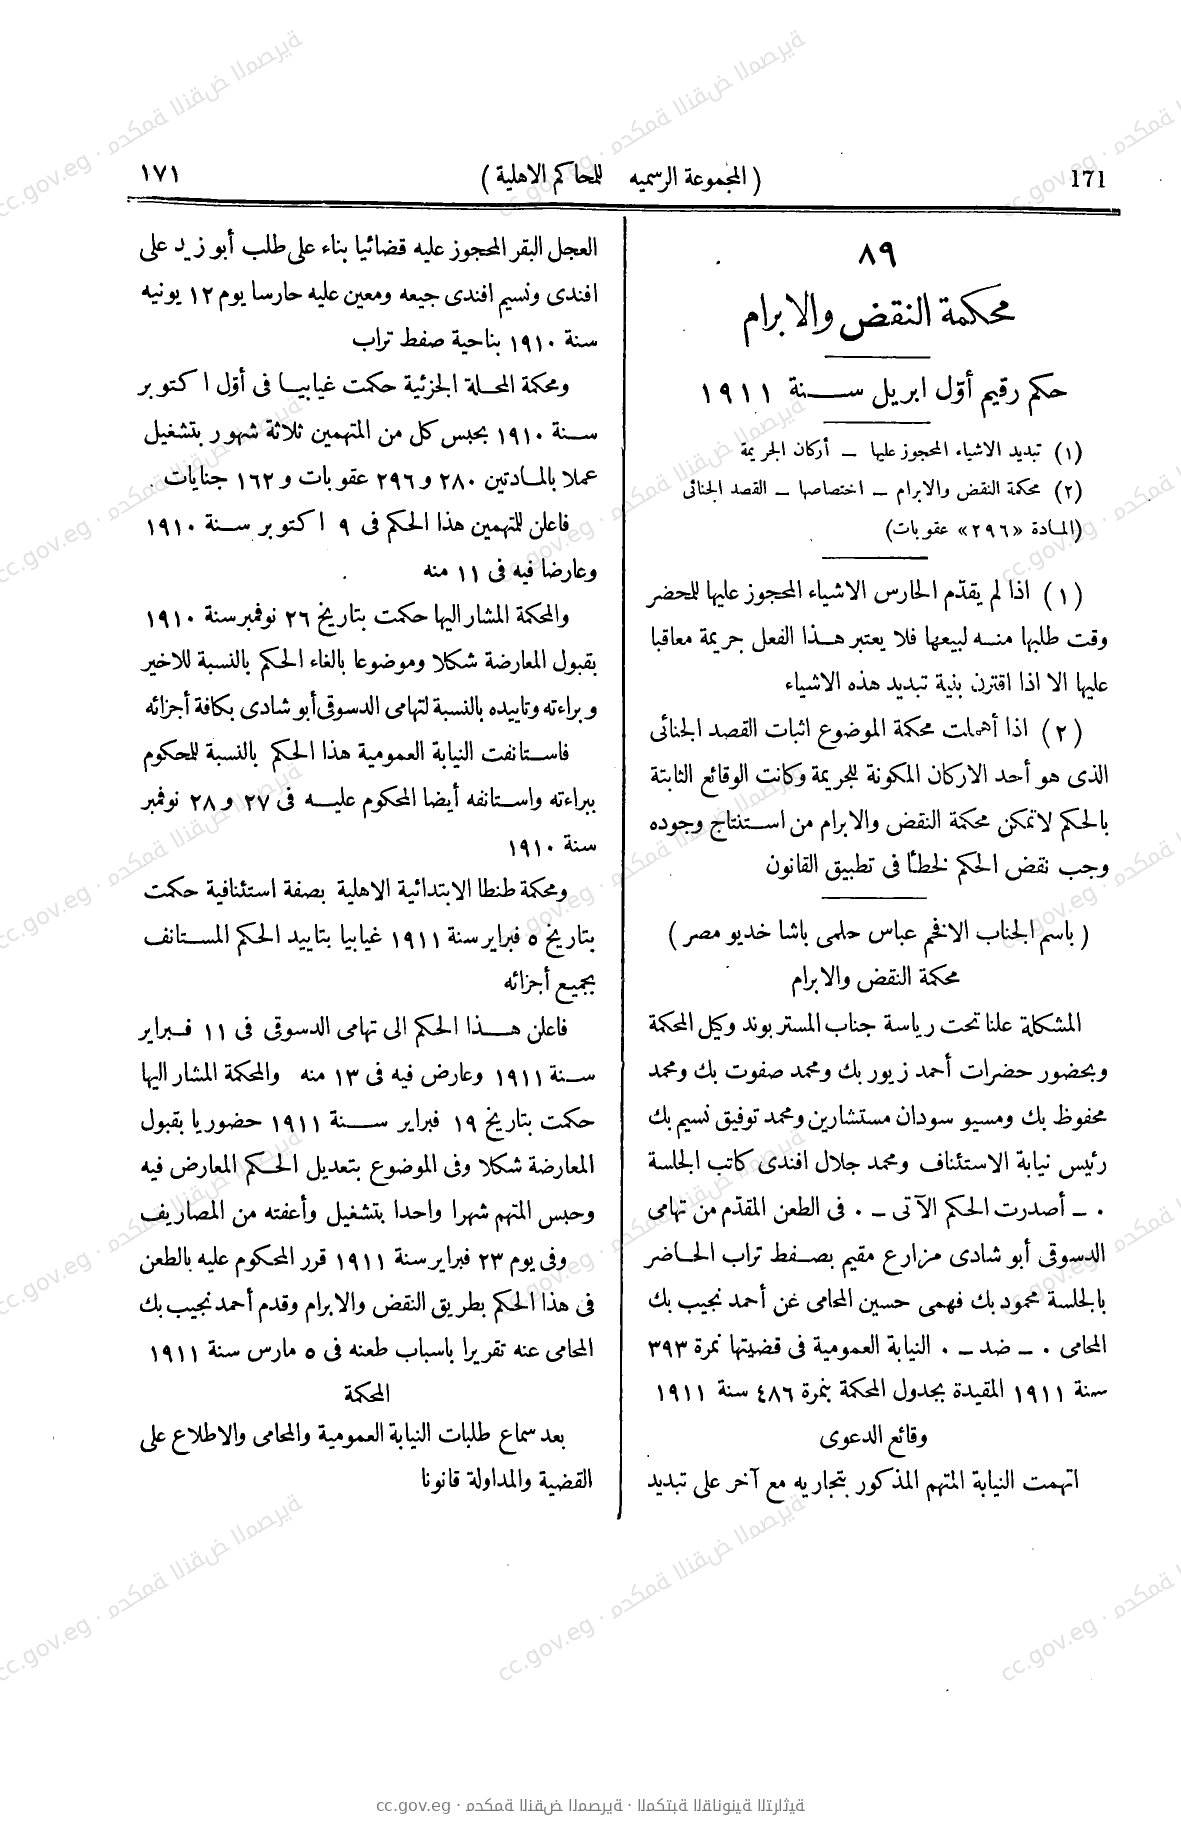 171 ( المجموعة الرسميه للمحاكم الاهلية ) ١٧١
٨٩
محكمة النقض والابرام
حكم رقيم أوّل ابريل سنة ١٩١١
(١) تبديد الاشياء المحجوز عليها — أركان الجريمة
(٢) محكمة النقض والابرام — اختصاصها — القصد الجنائى
(المادة «٢٩٦» عقوبات)
(١) اذا لم يقدّم الحارس الاشياء المحجوز عليها للمحضر
وقت طلبها منه لبيعها فلا يعتبر هذا الفعل جريمة معاقبا
عليها الا اذا اقترن بنية تبديد هذه الاشياء
(٢) اذا أهملت محكمة الموضوع اثبات القصد الجنائى
الذى هو أحد الاركان المكونة للجريمة وكانت الوقائع الثابتة
بالحكم لاتمكن محكمة النقض والابرام من استنتاج وجوده
وجب نقض الحكم لخطأ فى تطبيق القانون
( باسم الجناب الافخم عباس حلمى باشا خديو مصر )
محكمة النقض والابرام
المشكلة علنا تحت رياسة جناب المستر بوند وكيل المحكمة
وبحضور حضرات أحمد زيور بك ومحمد صفوت بك ومحمد
محفوظ بك ومسيو سودان مستشارين ومحمد توفيق نسيم بك
رئيس نيابة الاستئناف ومحمد جلال افندى كاتب الجلسة
٠ — أصدرت الحكم الآتى — ٠ فى الطعن المقدّم من تهامى
الدسوقى أبو شادى مزارع مقيم بصفط تراب الحاضر
بالجلسة محمود بك فهمى حسين المحامى عن أحمد نجيب بك
المحامى ٠ — ضد — ٠ النيابة العمومية فى قضيتها نمرة ٣٩٣
سنة ١٩١١ المقيدة بجدول المحكمة بنمرة ٤٨٦ سنة ١٩١١
وقائع الدعوى
اتهمت النيابة المتهم المذكور بتجاريه مع آخر على تبديد
العجل البقر المحجوز عليه قضائيا بناء على طلب أبو زيد على
افندى ونسيم افندى جيعه ومعين عليه حارسا يوم ١٢ يونيه
سنة ١٩١٠ بناحية صفط تراب
ومحكمة المحلة الجزئية حكمت غيابيا فى أوّل اكتوبر
سنة ١٩١٠ بحبس كل من المتهمين ثلاثة شهور بتشغيل
عملا بالمادتين ٢٨٠ و ٢٩٦ عقوبات و ١٦٢ جنايات
فاعلن للمتهمين هذا الحكم فى ٩ اكتوبر سنة ١٩١٠
وعارضا فيه فى ١١ منه
والمحكمة المشار اليها حكمت بتاريخ ٢٦ نوفمبر سنة ١٩١٠
بقبول المعارضة شكلا وموضوعا بالغاء الحكم بالنسبة للاخير
وبراءته وتاييده بالنسبة لتهامى الدسوقى أبو شادى بكافة أجزائه
فاستانفت النيابة العمومية هذا الحكم بالنسبة للمحكوم
ببراءته واستانفه أيضا المحكوم عليه فى ٢٧ و ٢٨ نوفمبر
سنة ١٩١٠
ومحكمة طنطا الابتدائية الاهلية بصفة استئنافية حكمت
بتاريخ ٥ فبراير سنة ١٩١١ غيابيا بتاييد الحكم المستانف
بجميع أجزائه
فاعلن هذا الحكم الى تهامى الدسوقى فى ١١ فبراير
سنة ١٩١١ وعارض فيه فى ١٣ منه والمحكمة المشار اليها
حكمت بتاريخ ١٩ فبراير سنة ١٩١١ حضوريا بقبول
المعارضة شكلا وفى الموضوع بتعديل الحكم المعارض فيه
وحبس المتهم شهرا واحدا بتشغيل وأعفته من المصاريف
وفى يوم ٢٣ فبراير سنة ١٩١١ قرر المحكوم عليه بالطعن
فى هذا الحكم بطريق النقض والابرام وقدم أحمد نجيب بك
المحامى عنه تقريرا باسباب طعنه فى ٥ مارس سنة ١٩١١
المحكمة
بعد سماع طلبات النيابة العمومية والمحامى والاطلاع على
القضية والمداولة قانونا
cc.gov.eg · محكمة النقض المصرية · المكتبة القانونية التراثية